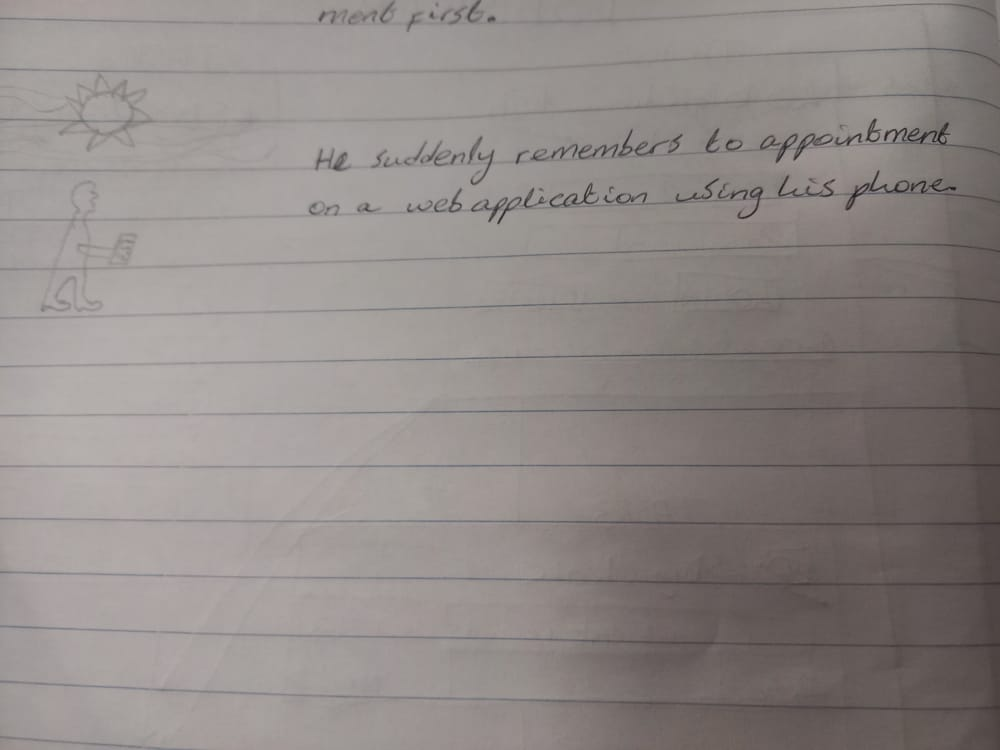 ment first.
He suddenly remembers to appointment
on a web application using his phone.